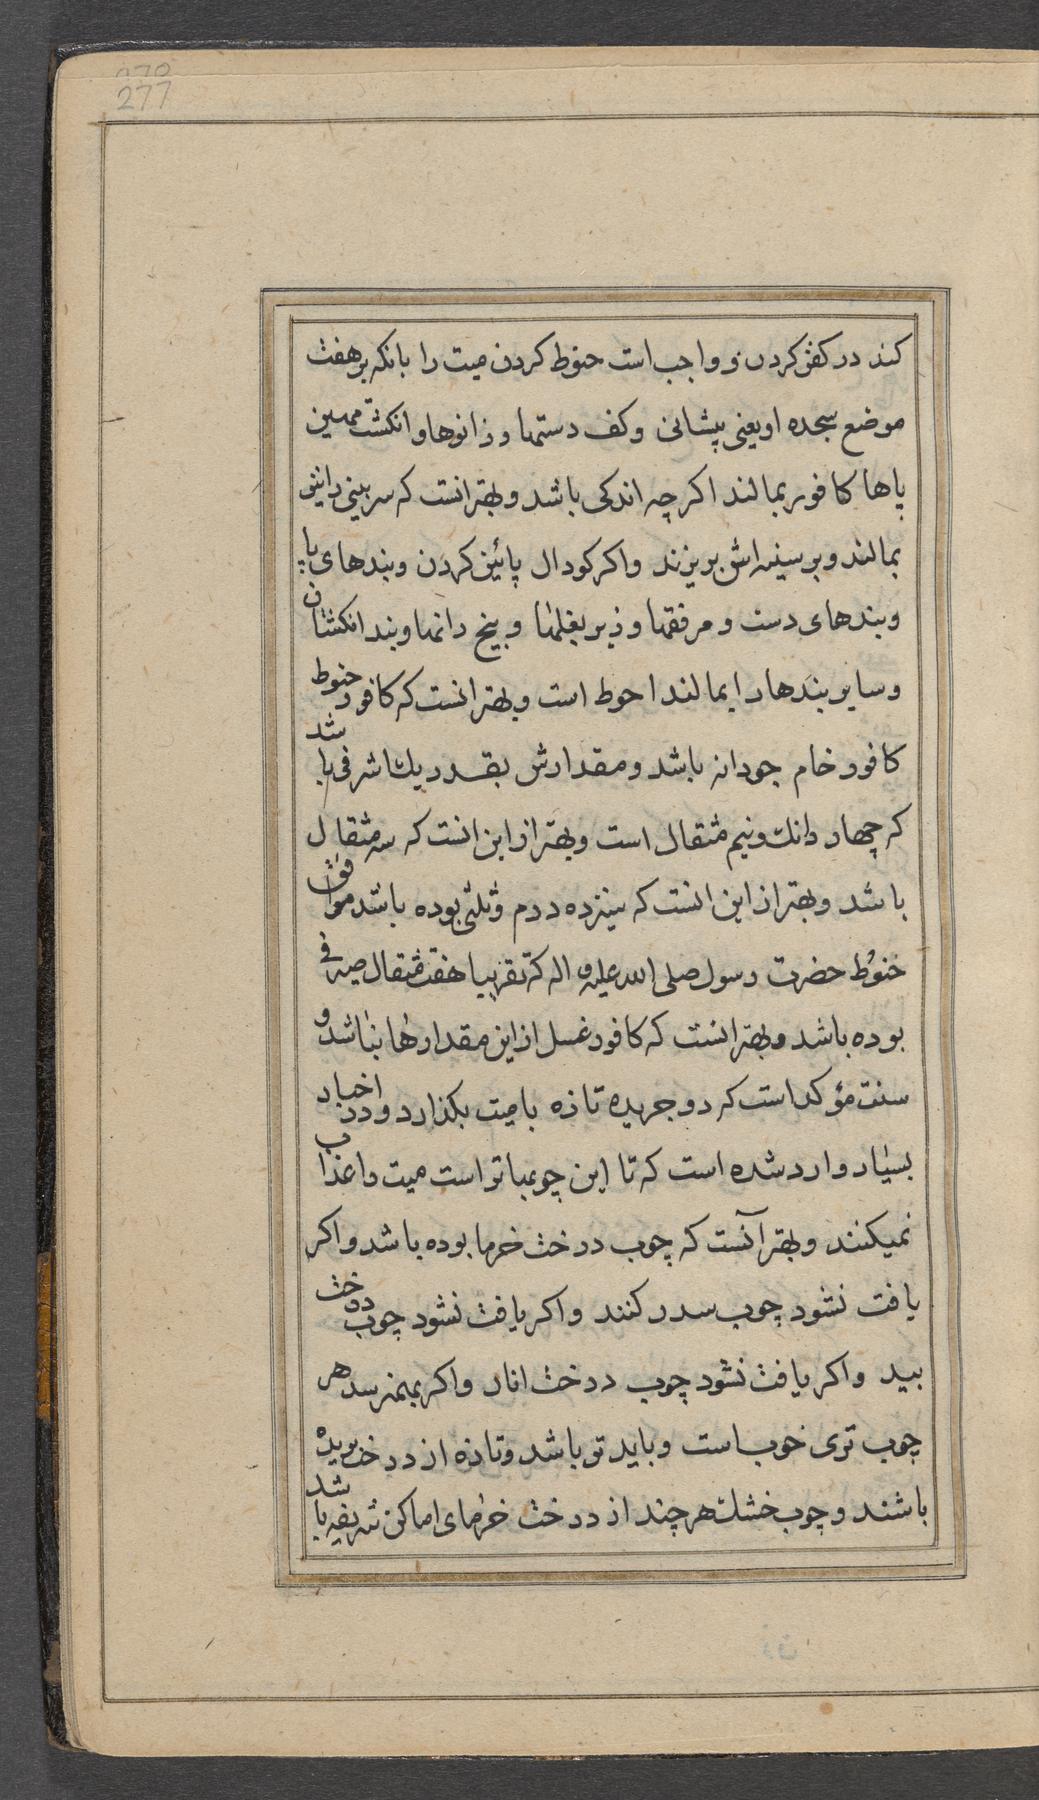 277
کند در کفن کردن و واجب است حنوط کردن میت را بانکه بر هفت
موضع سجده او یعنی پیشانی و کف دستها و زانوها و انکشت مهین
پاها کافور بمالند اکر چه اندکی باشد و بهتر انست که سر بینی رانیز
بمالند و بر سینه اش بریزند و اکر کودال پائین کردن و بندهای پا
و بندهای دست و مرفقها و زیر بغلها و بیخ رانها و بند انکشتان
و سایر بندها را بمالند احوط است و بهتر انست که کافور حنوط
کافور خام جودانه باشد و مقدارش بقدر یك اشرفی باشد
که چهار دانك و نیم مثقال است و بهتر از این انست که سه مثقال
باشد و بهتر از این انست که سیزده درم و ثلثی بوده باشد موافق
حنوط حضرت رسول صلی الله علیه و اله که تقریبا هفت مثقال صیرفی
بوده باشد و بهتر انست که کافور غسل از این مقدارها نباشد و
سنت مؤکد است که دو جریده تازه با میت بکذارد و در اخبار
بسیار وارد شده است که تا این چوبها تر است میت را عذاب
نمیکنند و بهتر آنست که چوب درخت خرما بوده باشد و اکر
یافت نشود چوب سدر کنند و اکر یافت نشود چوب درخت
بید و اکر یافت نشود چوب درخت انار و اکر بهم نرسد هر
چوب تری خوب است و باید تر باشد و تازه از درخت بریده
باشند و چوب خشك هر چند از درخت خرمای اماکن شریفه باشد